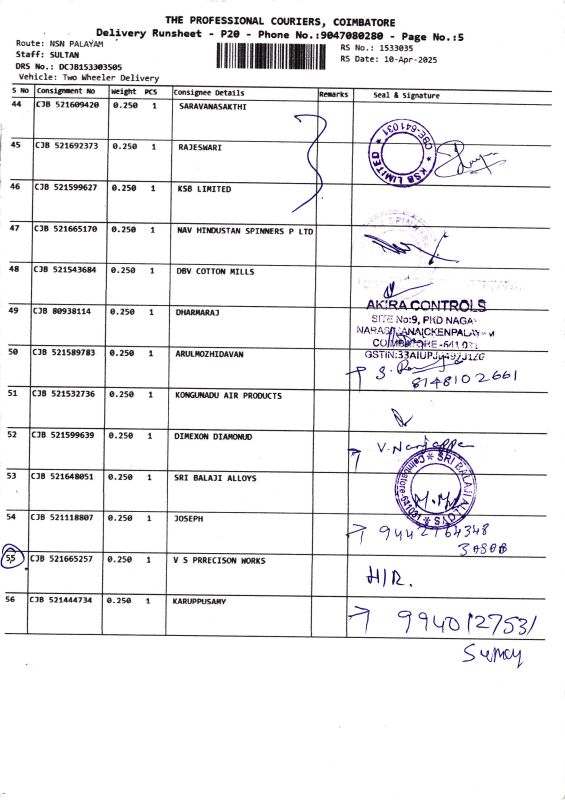 THE PROFESSIONAL COURIERS, COIMBATORE
Delivery Runsheet - P20 - Phone No.:9047080280 - Page No.:5
Route: NSN PALAYAM
RS No.: 1533035
Staff: SULTAN
RS Date: 10-Apr-2025
DRS No.: DCJB153303505
Vehicle: Two Wheeler Delivery
S No Consignment No Weight PCS Consignee Details Remarks Seal & Signature
44 CJB 521609420 0.250 1 SARAVANASAKTHI
45 CJB 521692373 0.250 1 RAJESWARI
KSB LIMITED CBE-641031
46 CJB 521599627 0.250 1 KSB LIMITED
47 CJB 521665170 0.250 1 NAV HINDUSTAN SPINNERS P LTD
48 CJB 521543684 0.250 1 DBV COTTON MILLS
49 CJB 80938114 0.250 1 DHARMARAJ
AKIRA CONTROLS
SITE No:9, PKD NAGA
50 CJB 521589783 0.250 1 ARULMOZHIDAVAN
8148102661
51 CJB 521532736 0.250 1 KONGUNADU AIR PRODUCTS
52 CJB 521599639 0.250 1 DIMEXON DIAMONUD
53 CJB 521648051 0.250 1 SRI BALAJI ALLOYS
SRI BALAJI ALLOYS Coimbatore-641031
54 CJB 521118807 0.250 1 JOSEPH
55 CJB 521665257 0.250 1 V S PRRECISON WORKS
H/R.
56 CJB 521444734 0.250 1 KARUPPUSAMY
9940127531